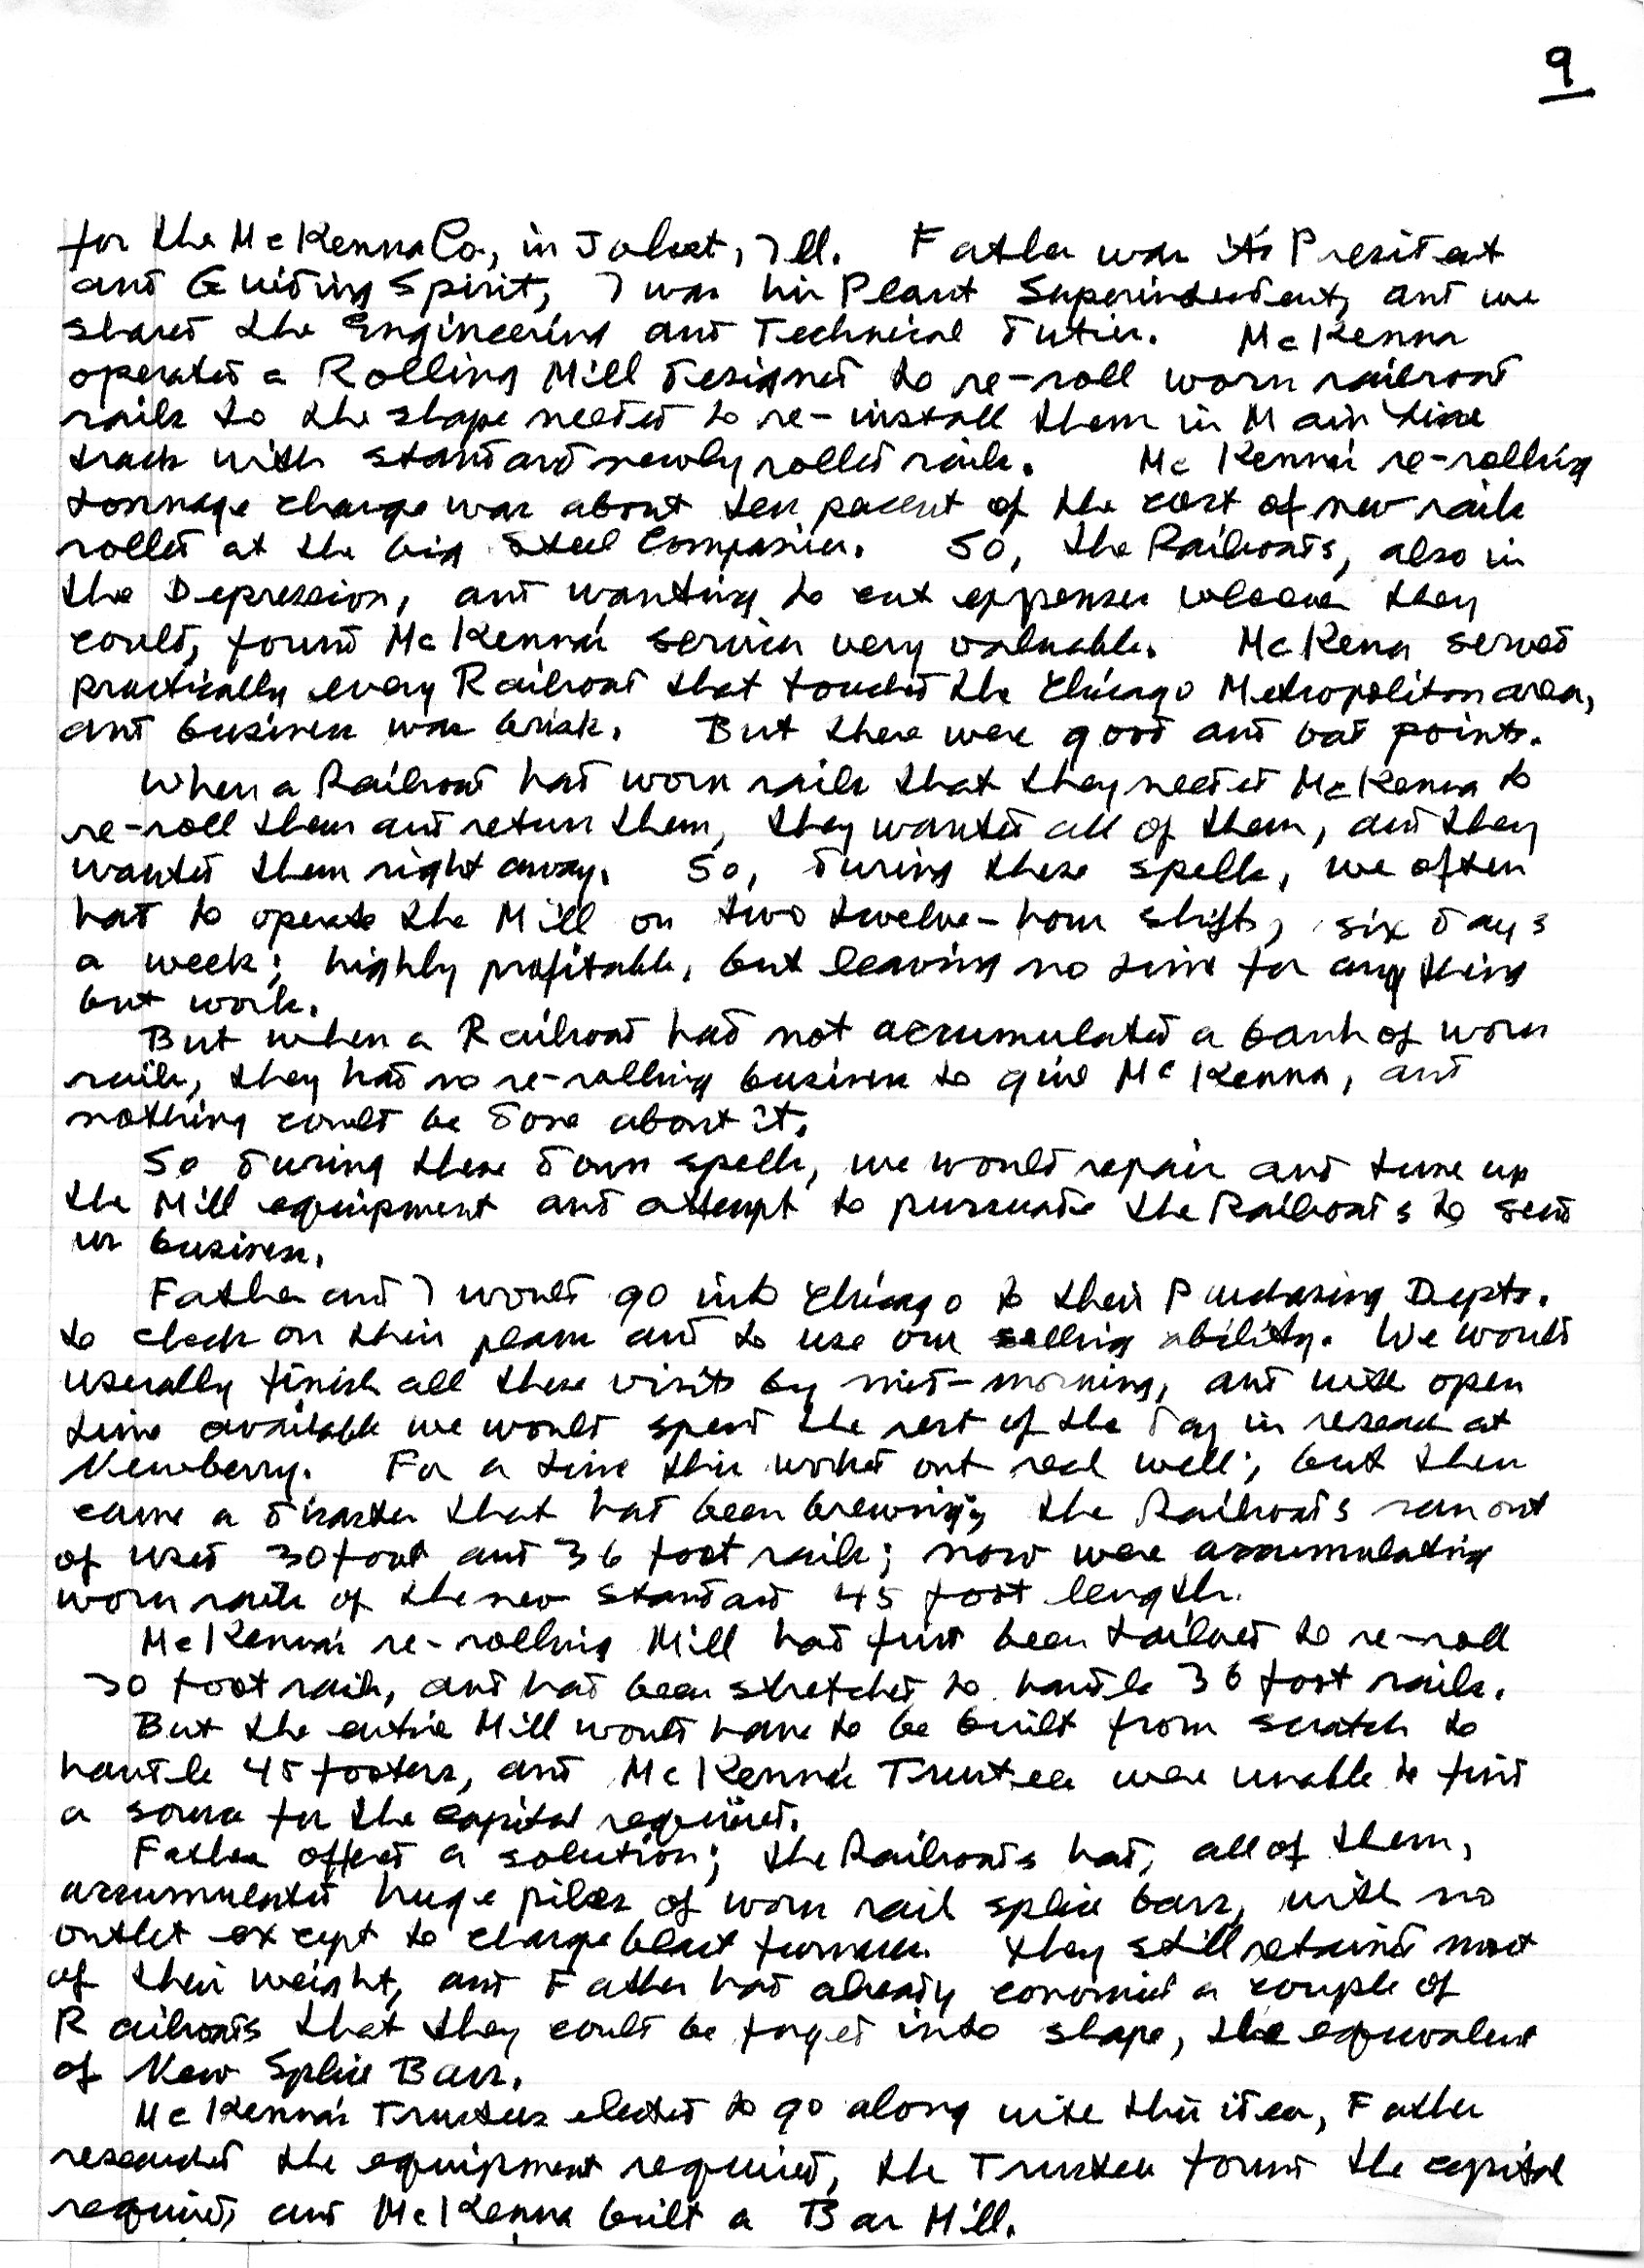 9
for the McKenna Co, in Joliet, Ill. Father was its President
and Guiding Spirit, I was his Plant Superintendent, and we
shared the Engineering and Technical duties. McKenna
operated a Rolling Mill designed to re-roll worn railroad
rails to the shape needed to re-install them in Main Line
track with standard newly rolled rails. McKenna's re-rolling
tonnage charge was about ten percent of the cost of new rails
rolled at the big Steel Companies. So, the Railroads, also in
the Depression, and wanting to cut expenses wherever they
could, found McKenna's services very valuable. McKena served
practically every Railroad that touched the Chicago Metropolitan area,
and business was brisk. But there were good and bad points.
When a Railroad had worn rails that they needed McKenna to
re-roll them and return them, they wanted all of them, and they
wanted them right away. So, during these spells, we often
had to operate the Mill on two twelve-hour shifts, six days
a week; highly profitable, but leaving no time for anything
but work.
But when a Railroad had not accumulated a bank of worn
rails, they had no re-rolling business to give McKenna, and
nothing could be done about it.
So during these down spells, we would repair and tune up
the Mill equipment and attempt to pursuade the Railroads to send
us business.
Father and I would go into Chicago to their Purchasing Depts.
to check on their plans and to use our selling ability. We would
userally finish all these visits by mid-morning, and with open
time available we would spend the rest of the day in research at
Newberry. For a time this worked out real well; but then
came a disaster that had been brewing; the Railroads ran out
of used 30 foot and 36 foot rails; now were accumulating
worn rails of the new standard 45 foot length.
McKenna's re-rolling Mill had first been tailored to re-roll
30 foot rails, and had been stretched to handle 36 foot rails.
But the entire Mill would have to be built from scratch to
handle 45 footers, and McKenna's Trustees were unable to find
a source for the capital required.
Father offered a solution; the Railroads had, all of them,
accumulated huge piles of worn rail splice bars, with no
outlet except to charge blast furnaces. They still retained most
of their weight, and Father had already convinced a couple of
Railroads that they could be forged into shape, the equivalent
of New Splice Bars.
McKenna's Trustees elected to go along with this idea, Father
researched the equipment required, the Trustees found the capital
required and McKenna built a Bar Mill.